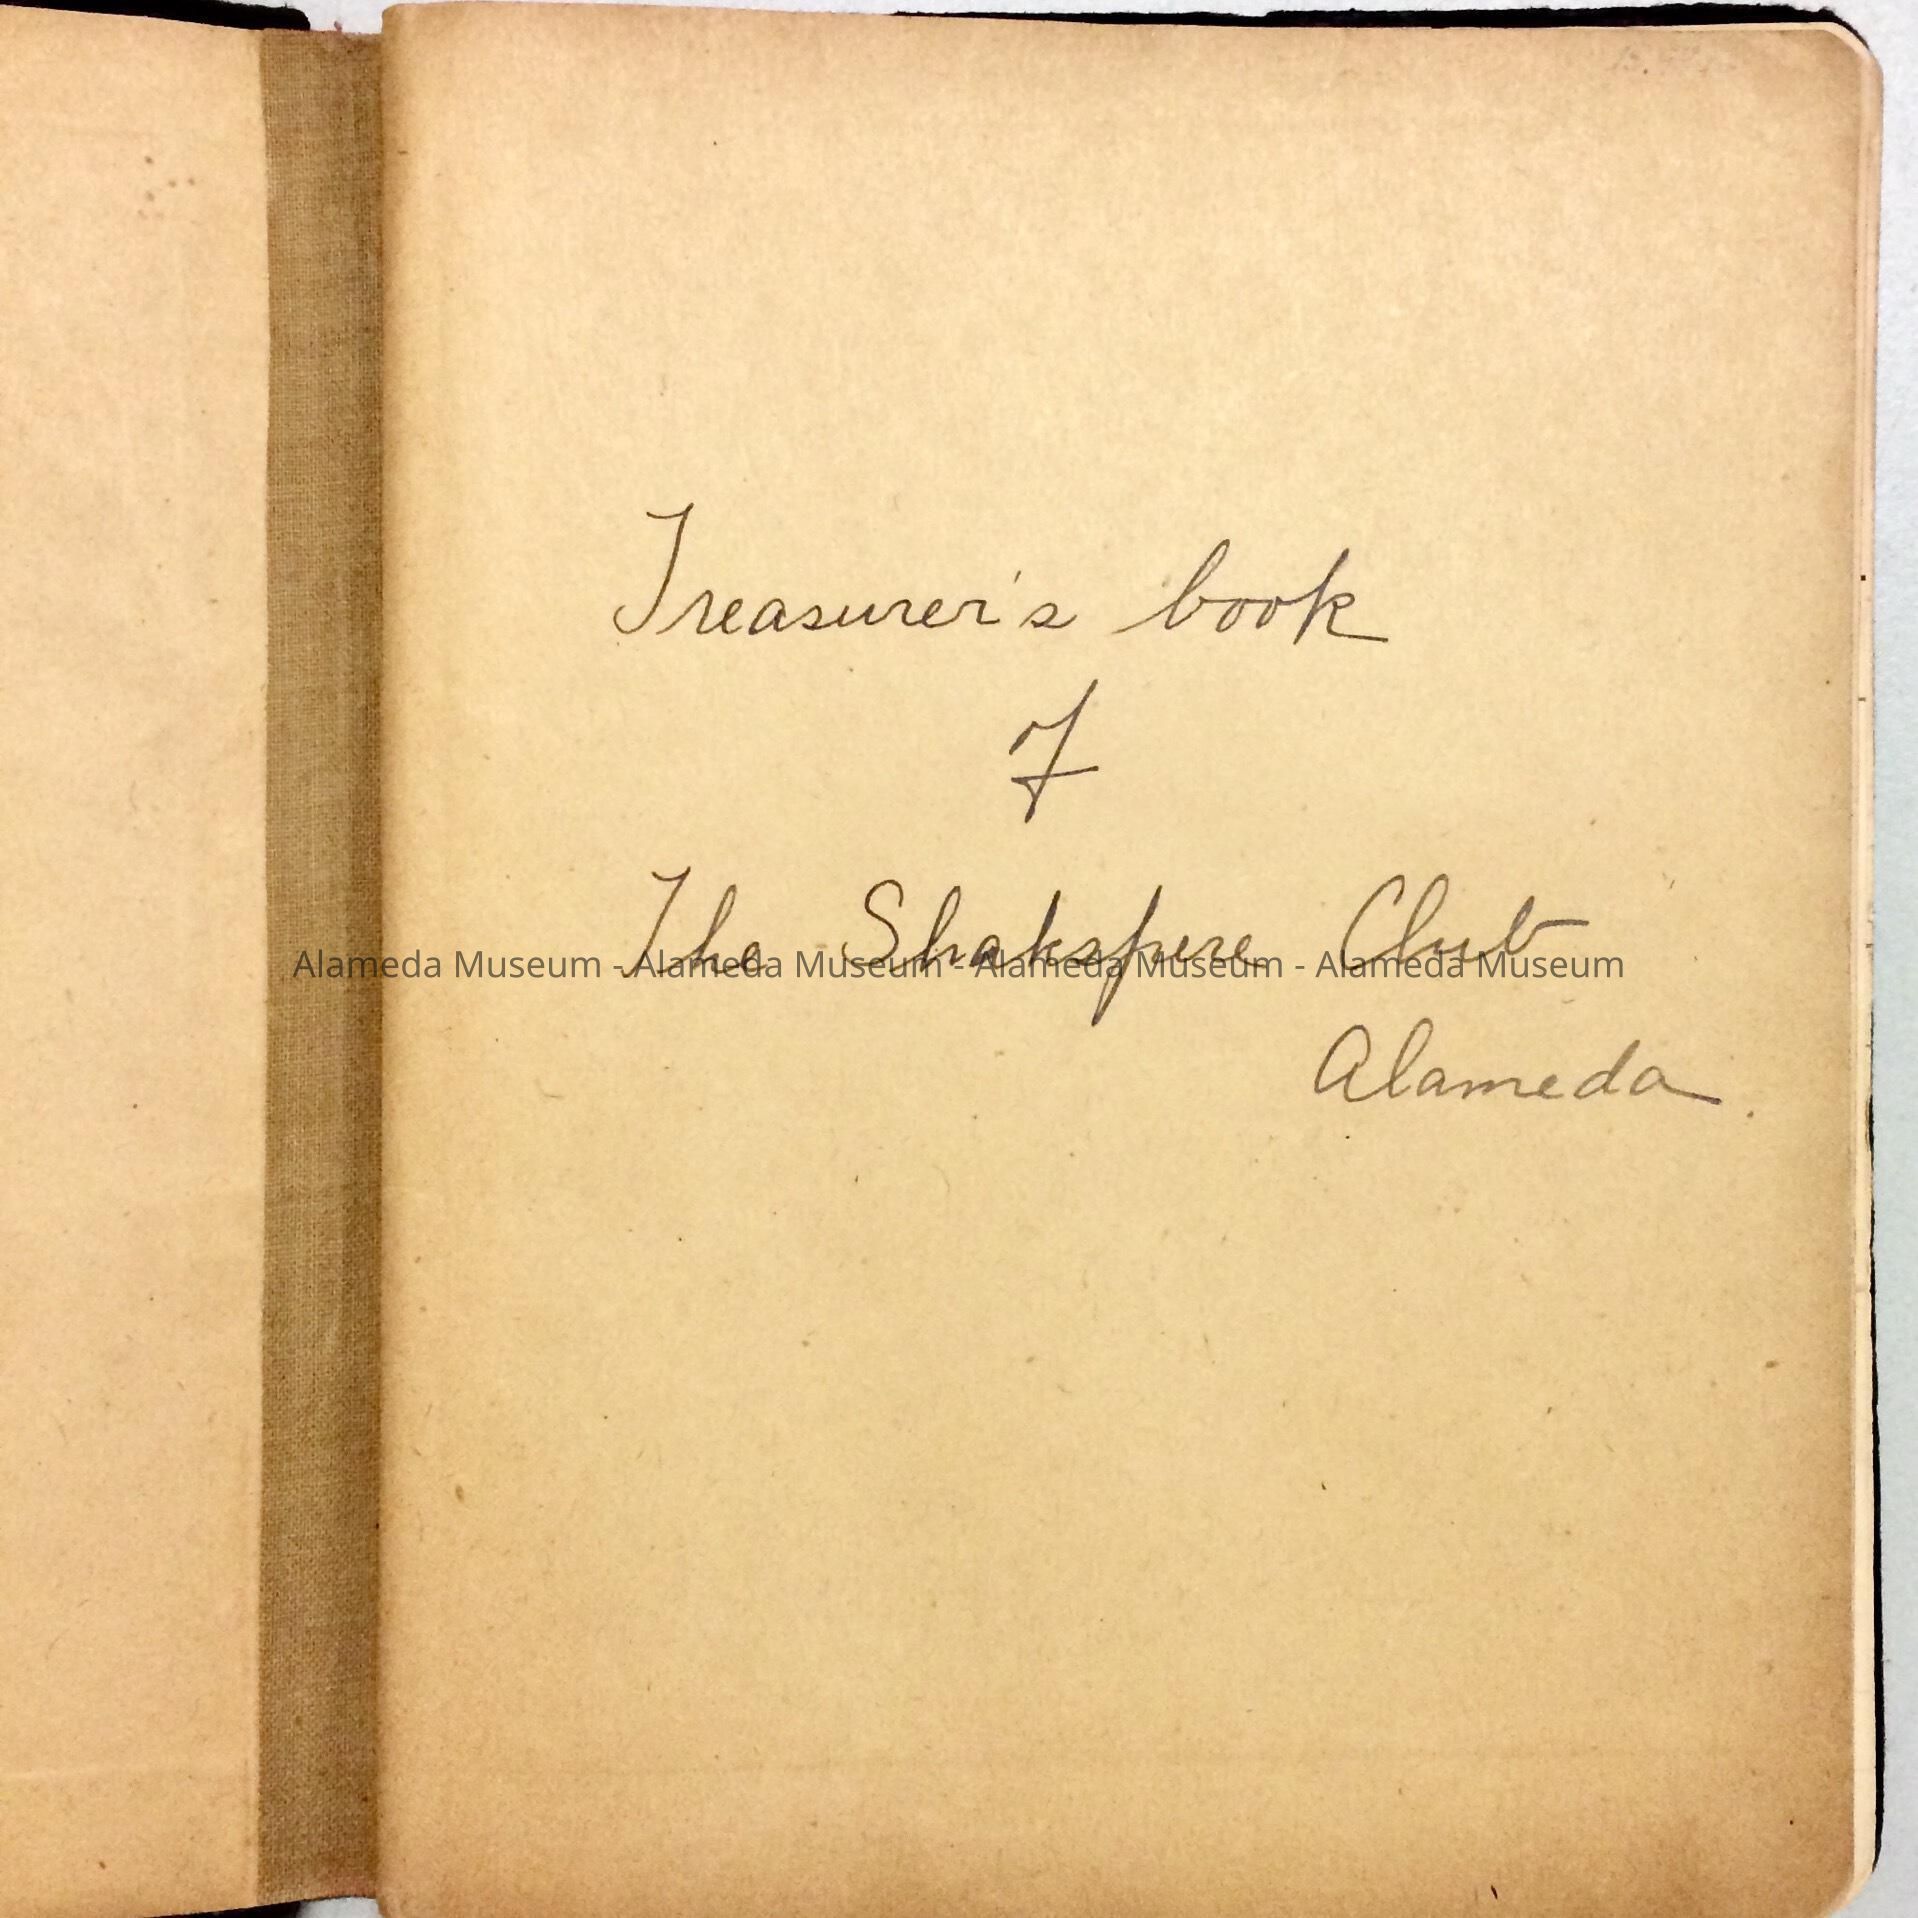 Treasurer's book
of
The Shakspere Club
Alameda Museum - Alameda Museum - Alameda Museum - Alameda Museum
Alameda.